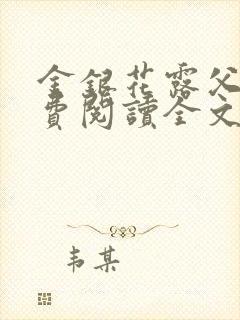 金銀花露父
費閱讀全文
韦某